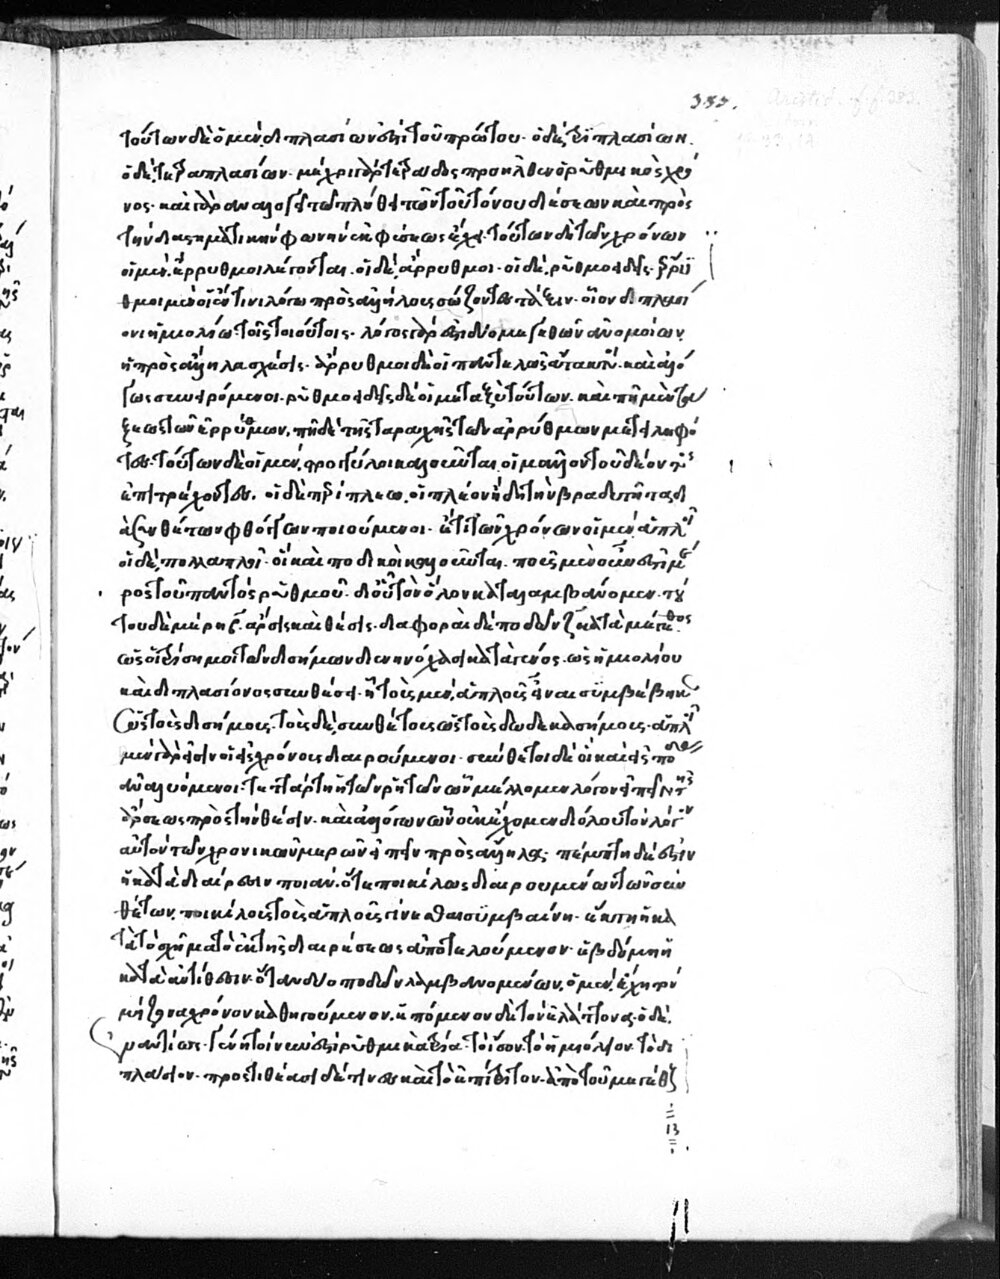 333.
τούτων δὲ ὁ μὲν, διπλασίων ἐστὶ τοῦ πρώτου· ὁ δὲ, τριπλασίων.
ὁ δὲ, τετραπλασίων· μέχρι γὰρ τετράδος προσῆλθεν ὁ ῥυθμικὸς χρό
νος· καὶ γὰρ ἀναλογεῖ τῷ πλήθει τῶν τοῦ τόνου διέσεων καὶ πρὸς
τὴν διαστηματικὴν φωνὴν εὐφυῶς ἔχει· τούτων δὲ τῶν χρόνων
οἱ μὲν, ἔρρυθμοι λέγονται. οἱ δὲ, ἄρρυθμοι· οἱ δὲ, ῥυθμοειδεῖς· ἔρρυ
θμοι μὲν οἱ ἔν τινι λόγῳ πρὸς ἀλλήλους σώζοντες τάξιν· οἷον διπλασί
ονι ἡμιολίῳ τοῖς τοιούτοις· λόγος γάρ ἐστι δύο μεγεθῶν ἀνομοίων
ἡ πρὸς ἄλληλα σχέσις· ἄρρυθμοι δὲ οἱ παντελῶς ἄτακτοι· καὶ ἀλό
γως συνειρόμενοι· ῥυθμοειδεῖς δὲ οἱ μεταξὺ τούτων. καὶ πῇ μὲν τῆς τά
ξεως τῶν ἐρρύθμων, πῇ δὲ τῆς ταραχῆς τῶν ἀρρύθμων μετειληφό
τες· τούτων δὲ οἱ μὲν, στρογγύλοι καλοῦνται οἱ μᾶλλον τοῦ δέοντος
ἐπιτρέχοντες. οἱ δὲ περίπλεῳ, οἱ πλέον ἤδη τὴν βραδυτῆτα δι
ὰ συνθέτων φθόγγων ποιούμενοι· ἔτι τῶν χρόνων οἱ μὲν ἁπλοῖ
οἱ δὲ, πολλαπλοῖ· οἳ καὶ ποδικοὶ καλοῦνται. ποῦς μὲν οὖν ἐστι μέ
ρος τοῦ παντὸς ῥυθμοῦ· δι' οὗ τὸν ὅλον καταλαμβάνομεν· τού
του δὲ μέρη β. ἄρσις καὶ θέσις· διαφοραὶ δὲ ποδῶν ζ κατὰ μέγεθος
ὡς οἱ τρίσημοι τῶν δισήμων διενηνόχασι κατὰ γένος. ὡς ἡμιολίου
καὶ διπλασίονος συνθέσει· ᾗ τοὺς μὲν, ἁπλοῦς εἶναι συμβέβηκεν
ὡς τοὺς δισήμους. τοὺς δὲ, συνθέτους ὡς τοὺς δωδεκασήμους· ἁπλοῖ
μὲν γάρ εἰσιν οἱ εἰς χρόνους διαιρούμενοι· σύνθετοι δὲ οἱ καὶ εἰς πόδας
ἀναλυόμενοι· τετάρτη ἡ τῶν ῥητῶν ὧν μέλλομεν λόγον εἰπεῖν τῆς
ἄρσεως πρὸς τὴν θέσιν. καὶ ἀλόγων ὧν οὐκ ἔχομεν δι' ὅλου τὸν λόγον
αὐτὸν τῶν χρονικῶν μερῶν εἰπεῖν πρὸς ἄλληλα· πέμπτη δέ ἐστιν
ἡ κατὰ διαίρεσιν ποιάν. ὅτε ποικίλως διαιρουμένων τῶν συν
θέτων, ποικίλους τοὺς ἁπλοῦς γίνεσθαι συμβαίνει· ἕκτη ἡ κα
τὰ τὸ σχῆμα τὸ ἐκ τῆς διαιρέσεως ἀποτελούμενον· ἑβδόμη ἡ
κατὰ ἀντίθεσιν· ὅταν δύο ποδῶν λαμβανομένων, ὁ μὲν, ἔχῃ τὸν
μείζονα χρόνον καθηγούμενον. ἑπόμενον δὲ τὸν ἐλάττονα. ὁ δὲ,
ἐναντίως· γένη τοίνυν ἐστὶ ῥυθμικὰ τρία· τὸ ἴσον. τὸ ἡμιόλιον. τὸ δι
πλάσιον· προστιθέασι δέ τινες καὶ τὸ ἐπίτριτον. ἀπὸ τοῦ μεγέθους
13